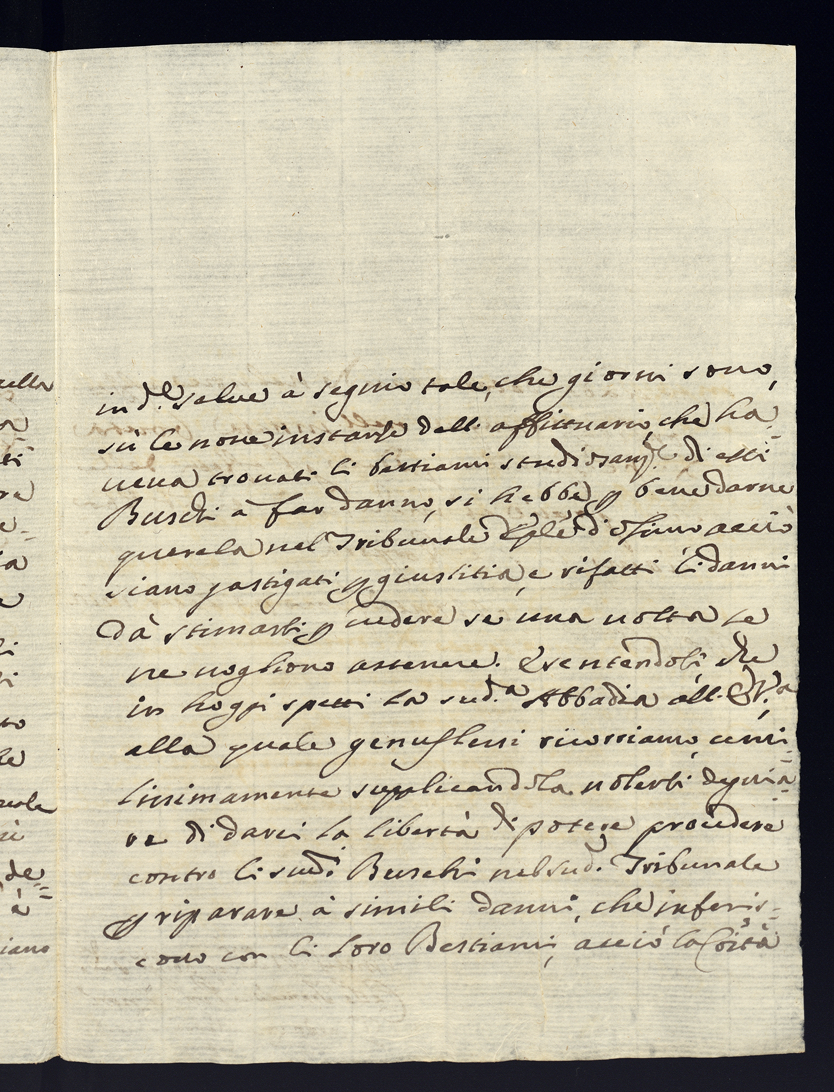 in d.e selue à segnio tale, che giorni sono,
sù le noue instanze dell'affittuario, che ha=
ueua trouati li bestiami studiosam.te di essi
Buschi à far danno, si hebbe p bene darne
querela nel Tribunale di Osimo acciò
siano gastigati p giustitia, e rifatti li danni
dà stimarsi p uedere se una uolta se
ne uogliono astenere. E sentendosi che
in hoggi spetti la sud.a Abbadia all'
alla quale genuflessi ricorriamo, umi=
lissimamente supplicandola uolersi degnia=
re di darci la libertà di potere procedere
contro li sud.i Buschi nel sud.o Tribunale
p riparare à simili danni, che inferis=
cono con li loro Bestiami, acciò la
uella
ti
re
ia
e
to
le
de=
è
iano